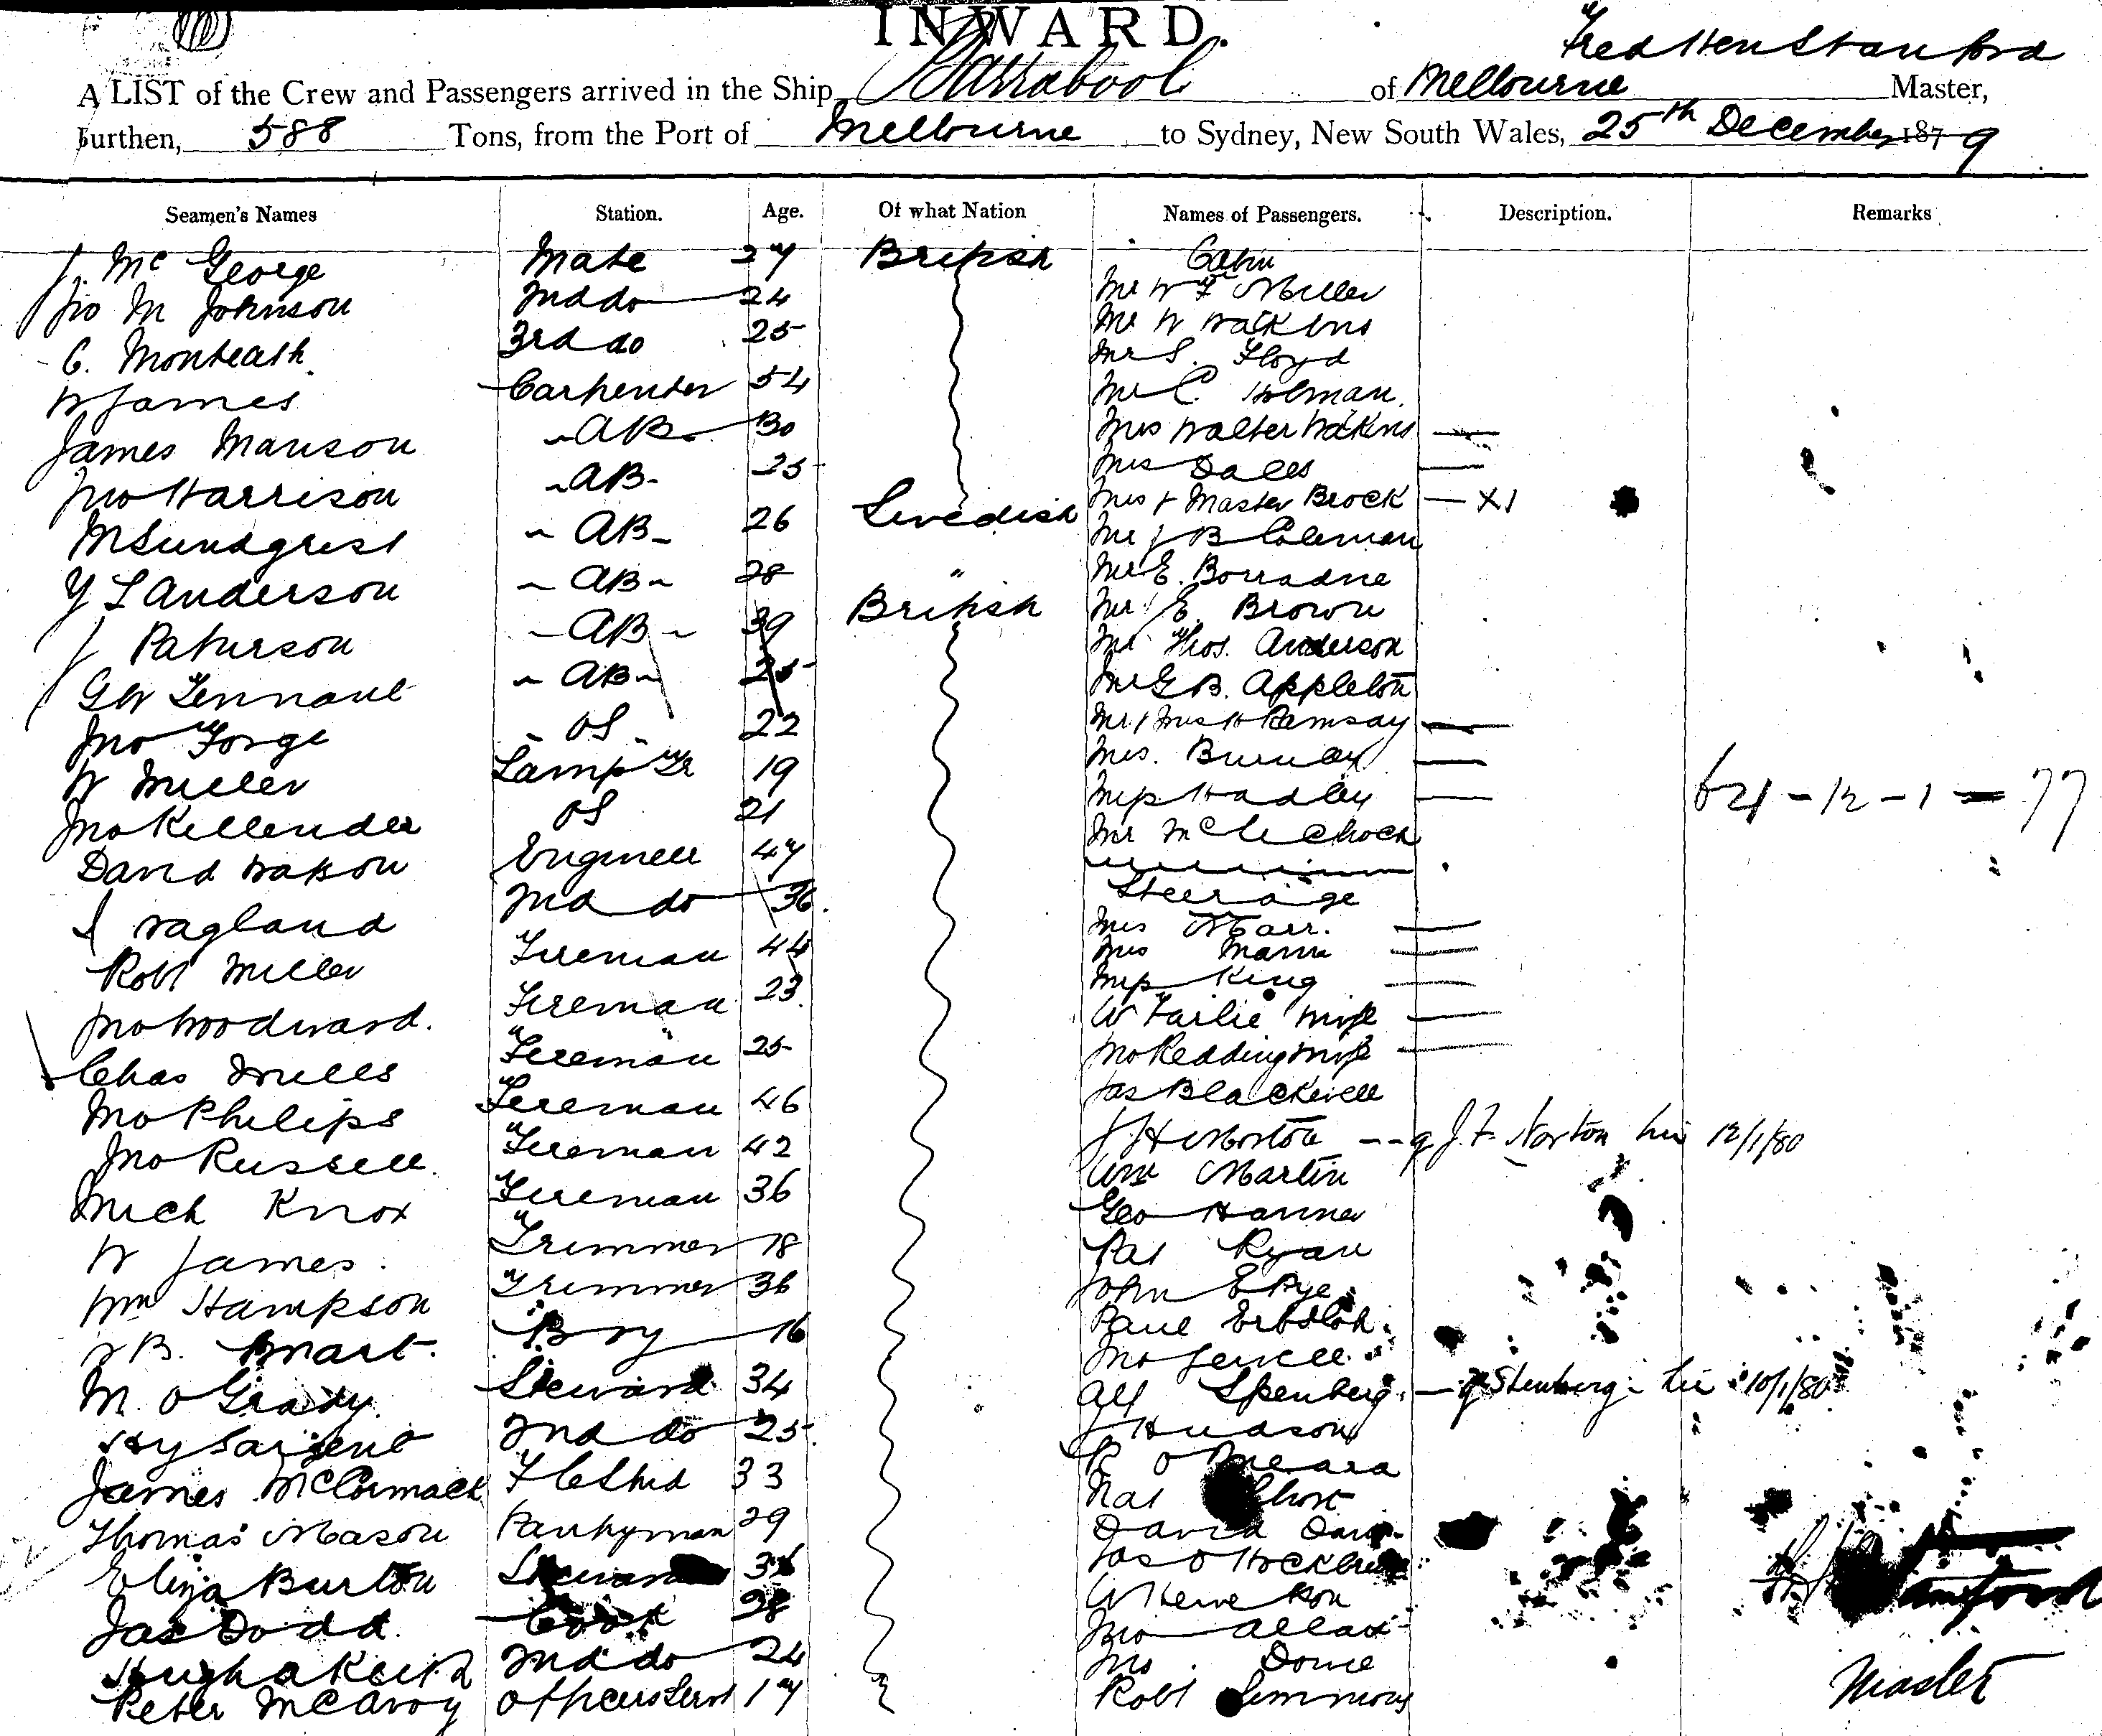 INWARD.
Fred Hen Stanford
A LIST of the Crew and Passengers arrived in the Ship Barrabool of Melbourne Master,
Burthen, 588 Tons, from the Port of Melbourne to Sydney, New South Wales, 25th December 1879
Seamen's Names Station. Age. Of what Nation Names of Passengers. Description. Remarks
J. McGeorge Mate 27 British Cabin
Jno M Johnson 2nd do 24 Mr W F Miller
C. Monteath 3rd do 25 Mr W Watkins
W James Carpenter 54 Mr S. Floyd
James Manson AB 30 Mr C. Holman
Jno Harrison AB 25 Mrs Walter Watkins
M Sundgrest AB 26 Swedish Mrs Dales
Y L Anderson AB 28 " Mrs & Master Brock — X1
J Paturson AB 39 British Mr J B Coleman
GW Tennant AB 25 Mr E.
Jno Forge OS 22 Mr E. Brown
W Miller Lamp Tr 19 Mr Thos. Anderson
Jno Kellender OS 21 Mr G B. Appleton
David Watson Engineer 47 Mr & Mrs H Ramsay
J Wagland 2nd do 36 Mrs.
Robt Miller Fireman 44 Miss Hadley 621 - 12 - 1 = 77
Jno Woodward. Fireman 23 Mr
Chas Mills Fireman 25 Steerage
Jno Philips Fireman 46 Mrs Marr.
Jno Russell Fireman 42 Mrs Mann
Mich Knox Fireman 36 Miss King
W James Trimmer 18 W Fairlie wife
Wm Hampson Trimmer 36 Jno Redding wife
B. Smart. Boy 16 Jas Blackwell
M. O Grady Steward 34 J H Morton -- q J. F. Norton 12/1/80
Hy Sargent 2nd do 25 Wm Martin
James McCormack F C Shid 33 Geo Hanner
Thomas Mason Pantryman 29 Pat Ryan
Eliza Burton 36 John E Pye
Jas Dodd. Cook 28 Paul Erbsloh
Hugh 2nd do 24 Jno Jewell
Peter McAvoy Officers Servt 17 Alf Spenberg — q Stenberg 10/1/80
J Hudson
R O Meara
Nat Short
David
Jas
W
Jno
Jno
Robt Simmons
Stanford
Master